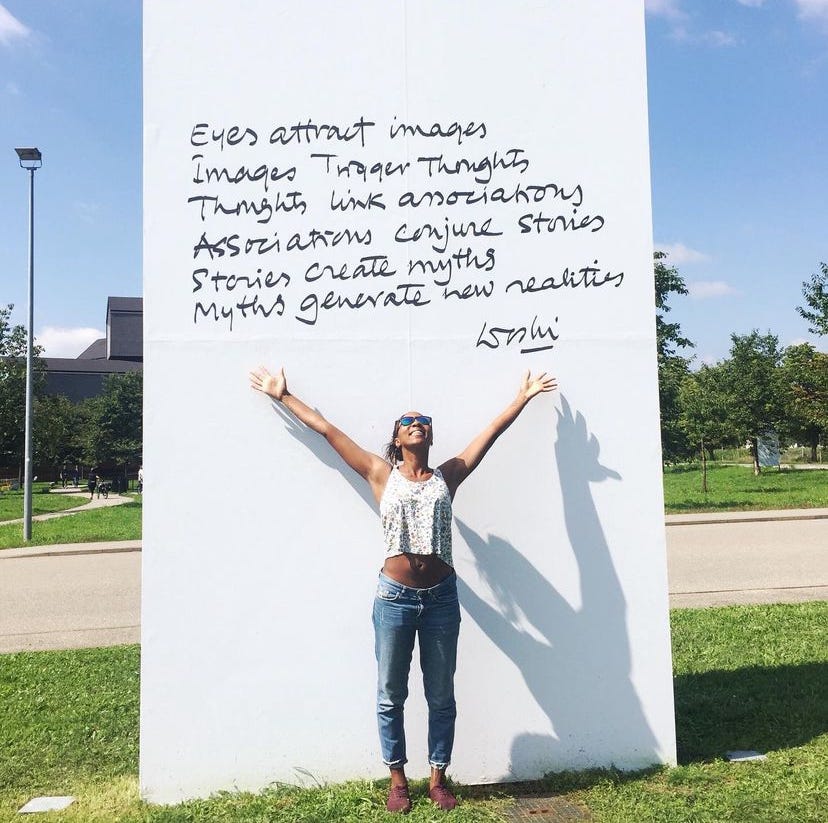 Eyes attract images
Images Trigger Thoughts
Thoughts link associations
Associations conjure Stories
Stories create myths
Myths generate new realities